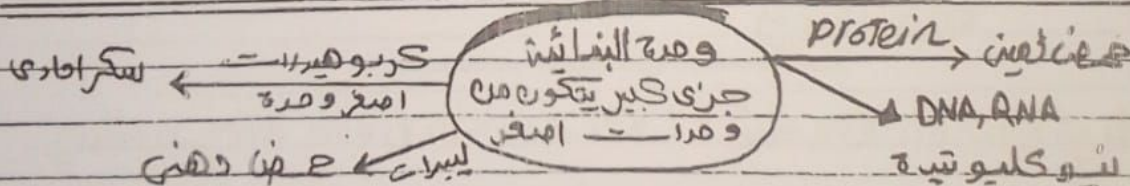 وحدة البنائية
جزئ كبير يتكون من
وحدات اصغر
protein
حمض أميني
DNA, RNA
نيوكليوتيدة
كربوهيدرات
اصغر وحدة
سكر احادي
ليبيدات
حمض دهني